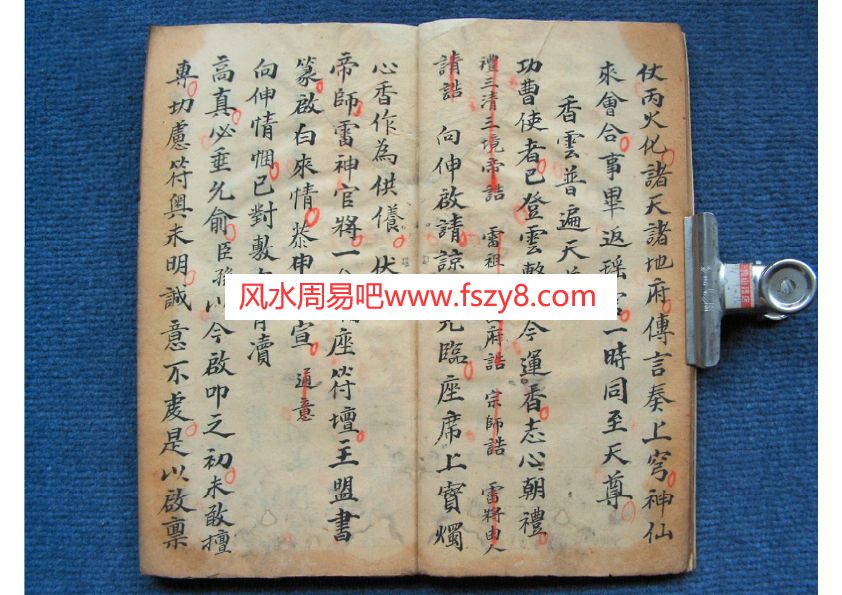 仗丙火化諸天諸地府傳言奏上穹神仙
來會合事畢返瑶一時同至天尊
香雲普遍天
功曹使者已登雲今運香志心朝禮
禮三清三境帝誥 雷祖府誥 宗師誥 雷將由人
請誥 向伸啟請諒臨座席上寶燭
心香作為供儀伏
帝師雷神官將一座符壇主盟書
篆啟白來情恭申宣 通意
向伸情悃已對敷瀆
高真必垂允俞臣孫以今啟叩之初未敢擅
專切慮符與未明誠意不虔是以啟禀
风水周易吧www.fszy8.com